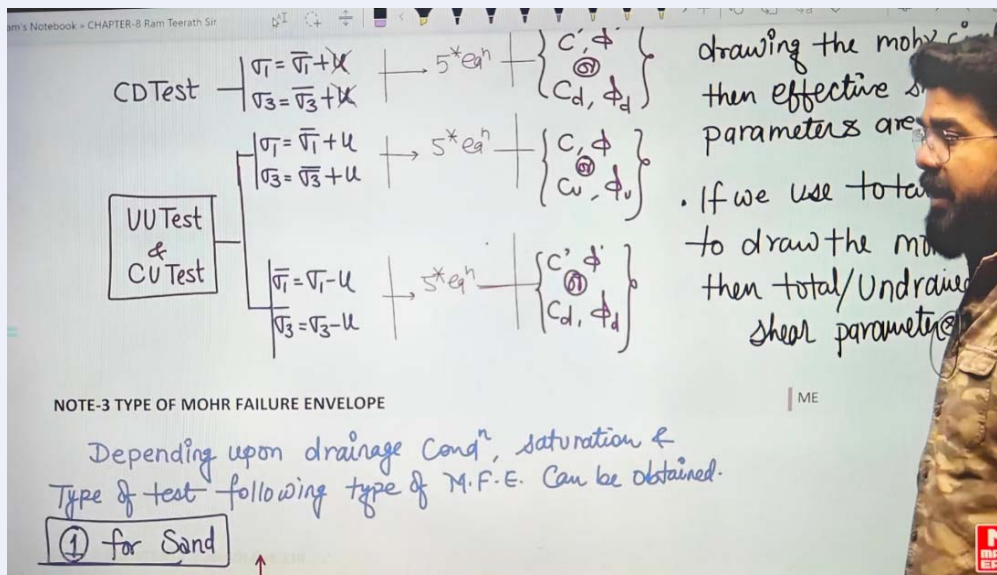 am's Notebook » CHAPTER-8 Ram Teerath Sir
CD Test
σ1 = σ̅1 + u
σ3 = σ̅3 + u
5* eqⁿ
C', ϕ'
or
Cd, ϕd
UU Test
&
CU Test
σ1 = σ̅1 + u
σ3 = σ̅3 + u
5* eqⁿ
C, ϕ
or
Cu, ϕu
σ̅1 = σ1 - u
σ̅3 = σ3 - u
5* eqⁿ
C' ϕ'
or
Cd, ϕd
drawing the mohr
then effective
parameters are
• If we use
to draw the
then total/Undrained
shear parameters
NOTE-3 TYPE OF MOHR FAILURE ENVELOPE
ME
Depending upon drainage Condⁿ, saturation &
Type of test following type of M.F.E. Can be obtained.
① for Sand